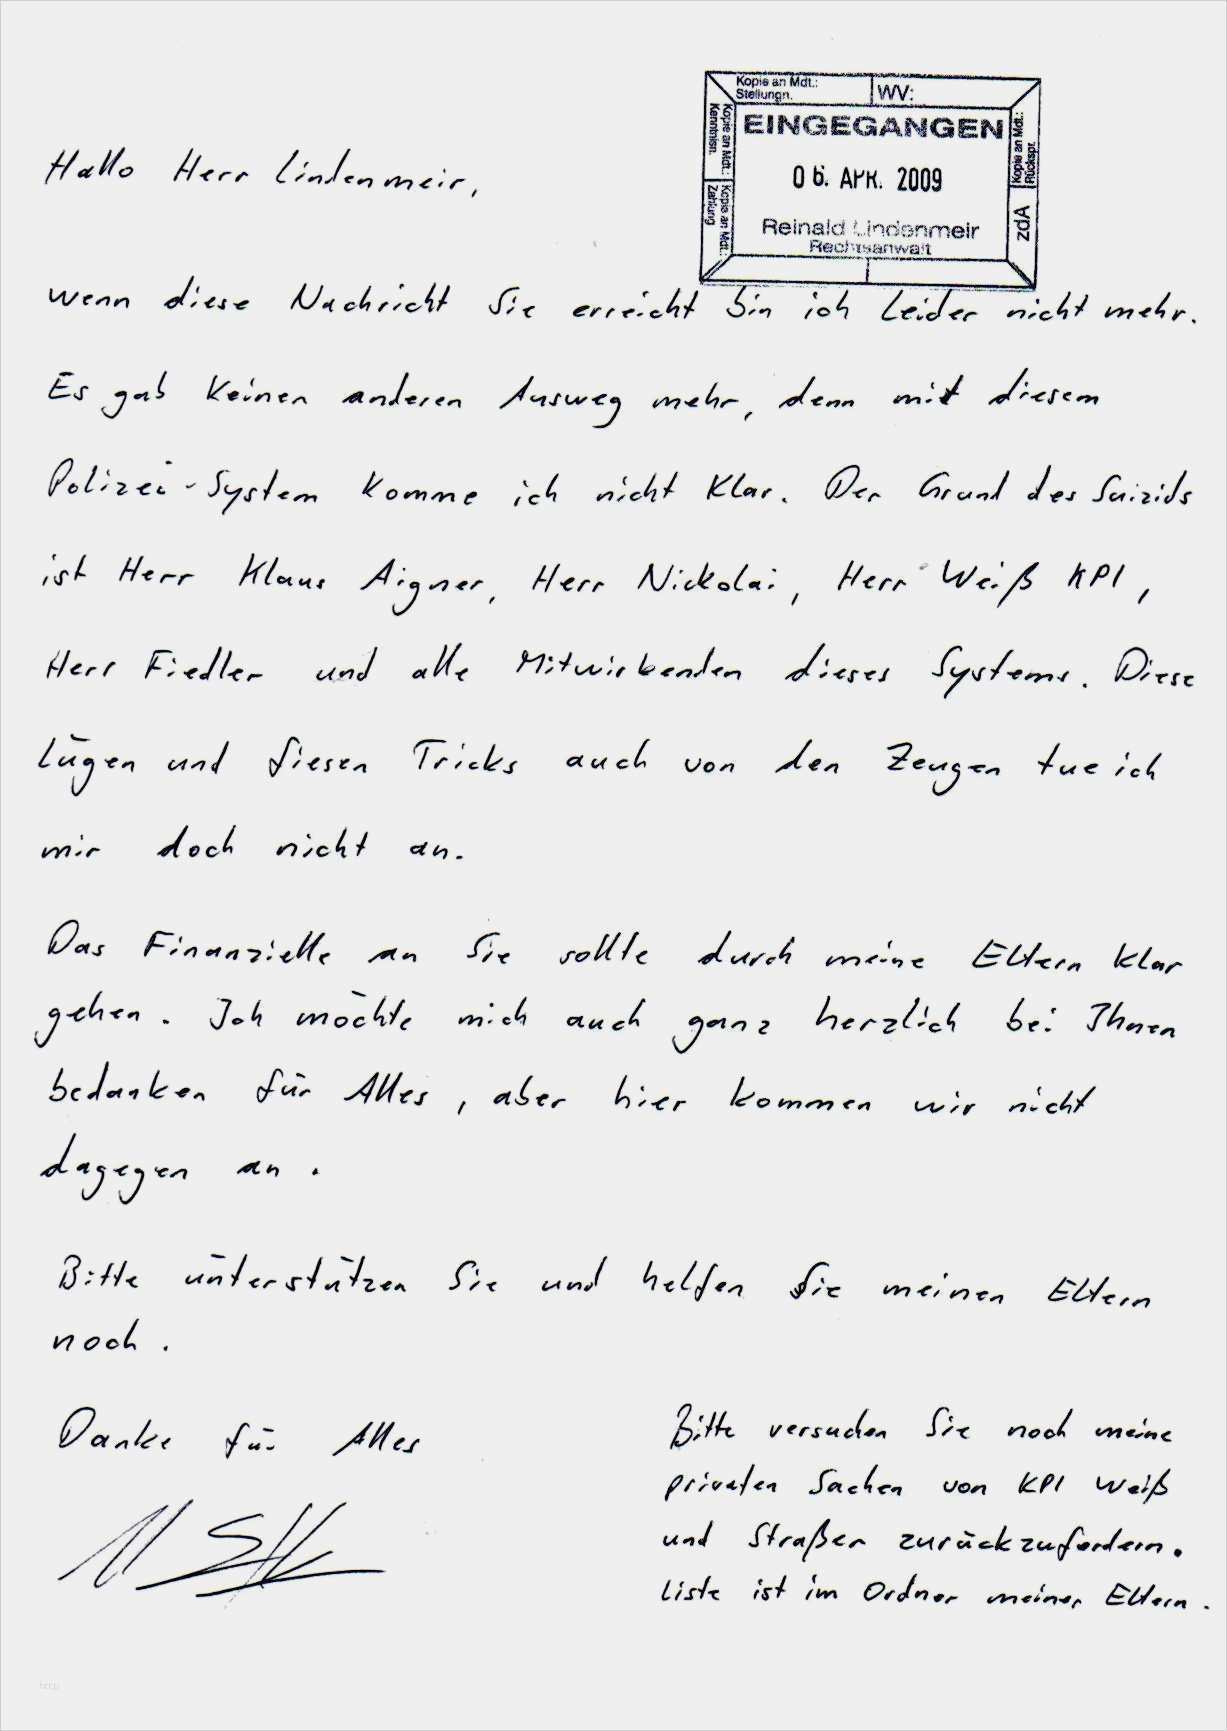 Kopie an Mdt.:
Stellungn.
WV:
Kopie an Mdt.:
Kenntnisn.
Kopie an Mdt.:
Zahlung
EINGEGANGEN
06. APR. 2009
Reinald Lindenmeir
Rechtsanwalt
Kopie an Mdt.:
Rückspr.
zdA
Hallo Herr Lindenmeir,
wenn diese Nachricht Sie erreicht bin ich leider nicht mehr.
Es gab keinen anderen Ausweg mehr, denn mit diesem
Polizei-System komme ich nicht klar. Der Grund des Suizids
ist Herr Klaus Aigner, Herr Nickolai, Herr Weiß KPI,
Herr Fiedler und alle Mitwirkenden dieses Systems. Diese
Lügen und fiesen Tricks auch von den Zeugen tue ich
mir doch nicht an.
Das Finanzielle an Sie sollte durch meine Eltern klar
gehen. Ich möchte mich auch ganz herzlich bei Ihnen
bedanken für Alles, aber hier kommen wir nicht
dagegen an.
Bitte unterstützen Sie und helfen Sie meinen Eltern
noch.
Danke für Alles
Bitte versuchen Sie noch meine
privaten Sachen von KPI Weiß
und Straßer zurückzufordern.
Liste ist im Ordner meiner Eltern.